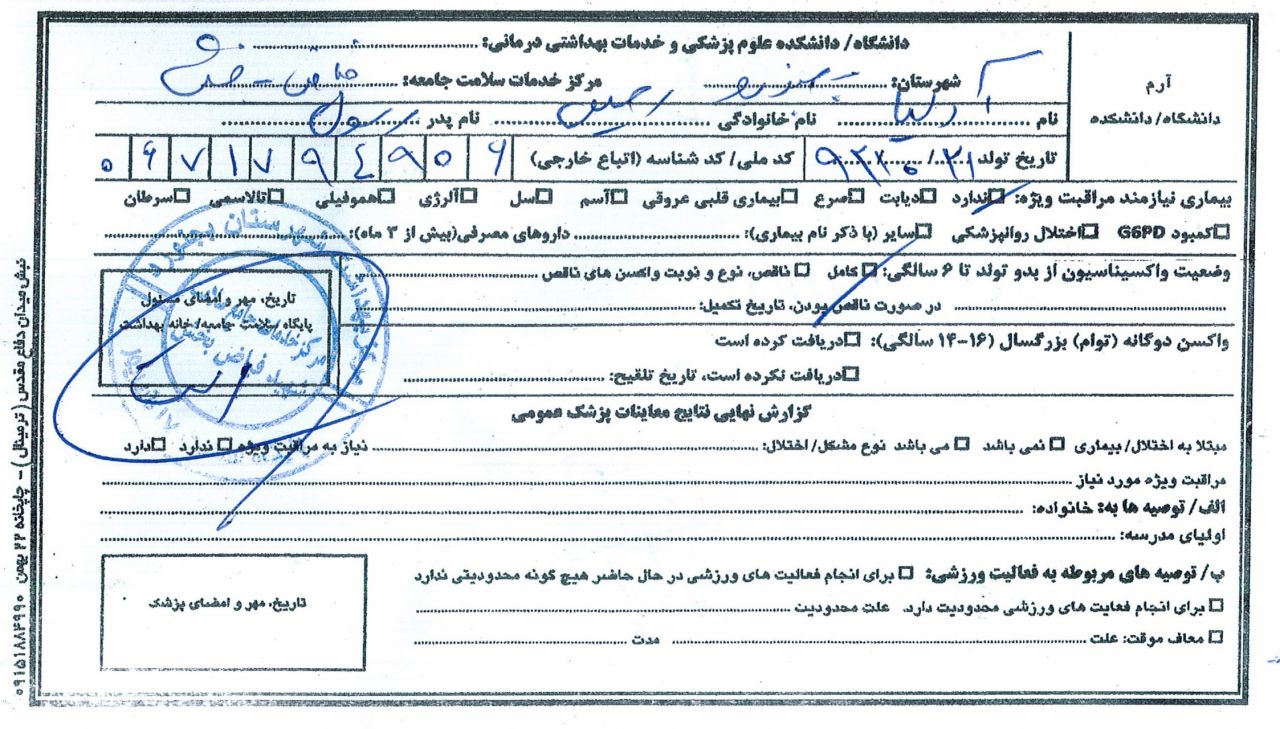 آرم
دانشگاه/ دانشکده
دانشگاه/ دانشکده علوم پزشکی و خدمات بهداشتی درمانی:
شهرستان: بجنورد مرکز خدمات سلامت جامعه:
نام نام خانوادگی نام پدر رسول
تاریخ تولد کد ملی/ کد شناسه (اتباع خارجی) ۰۶۷۱۷۹۴۹۵۶
بیماری نیازمند مراقبت ویژه: ☐ندارد ☐دیابت ☐صرع ☐بیماری قلبی عروقی ☐آسم ☐سل ☐آلرژی ☐هموفیلی ☐تالاسمی ☐سرطان
☐کمبود G6PD ☐اختلال روانپزشکی ☐سایر (با ذکر نام بیماری): داروهای مصرفی(بیش از ۳ ماه):
وضعیت واکسیناسیون از بدو تولد تا ۶ سالگی: ☐ کامل ☐ ناقص، نوع و نوبت واکسن های ناقص
در صورت ناقص بودن، تاریخ تکمیل:
واکسن دوگانه (توام) بزرگسال (۱۶-۱۴ سالگی): ☐دریافت کرده است
☐دریافت نکرده است، تاریخ تلقیح:
تاریخ، مهر و امضای مسئول
پایگاه سلامت جامعه/خانه بهداشت
گزارش نهایی نتایج معاینات پزشک عمومی
مبتلا به اختلال/ بیماری ☐ نمی باشد ☐ می باشد نوع مشکل/ اختلال: نیاز به مراقبت ویژه ☐ ندارد ☐دارد
مراقبت ویژه مورد نیاز
الف/ توصیه ها به: خانواده:
اولیای مدرسه:
ب/ توصیه های مربوطه به فعالیت ورزشی: ☐ برای انجام فعالیت های ورزشی در حال حاضر هیچ گونه محدودیتی ندارد
☐ برای انجام فعایت های ورزشی محدودیت دارد. علت محدودیت
☐ معاف موقت: علت مدت
تاریخ، مهر و امضای پزشک
نبش میدان دفاع مقدس ( ترمینال ) - چاپخانه ۲۲ بهمن ۰۹۱۵۱۸۸۴۹۹۰